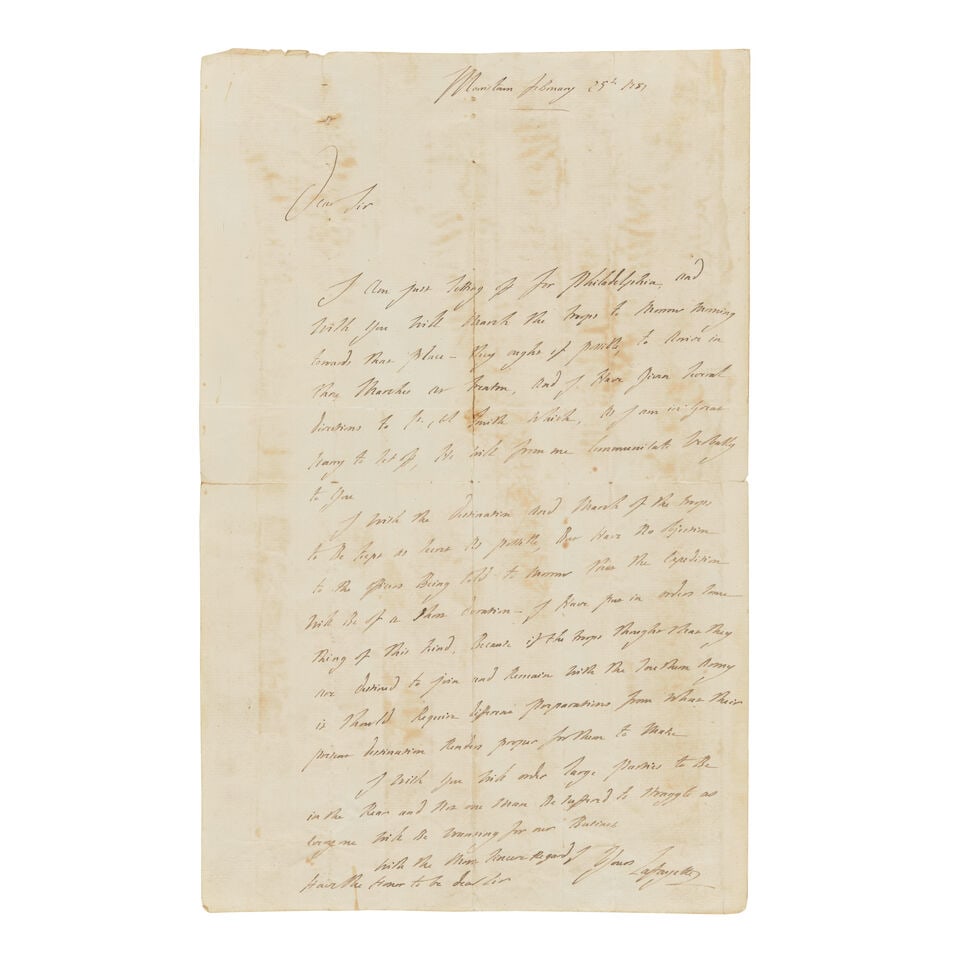 Morristown february 25th 1781
Dear Sir
I Am just Setting off for Philadelphia, and
Wish you Will March the troops to Morrow Morning
towards that place – they ought if possible, to Arrive in
three Marches at trenton, And I Have given Several
directions to Lt. Col Smith Which, As I am in Great
hurry to Set off, He will from me Communicate Verbally
to You
I Wish the destination And March of the troops
to Be Kept as Secret As possible, But Have No objection
to the officers Being told to Morrow that the Expedition
Will Be of a Short duration – I Have put in orders Some
thing of this kind, Because if the troops thought that they
are destined to join and Remain With the Southern Army
it Should Require different preparations from What their
present destination Renders proper for them to Make
I Wish you Will order large parties to Be
in the Rear and Not one Man Be Suffered to Straggle as
Every one Will Be Wanting for our Business
With the Most Sincere Regard I Yours
Have the Honor to be dear Sir Lafayette